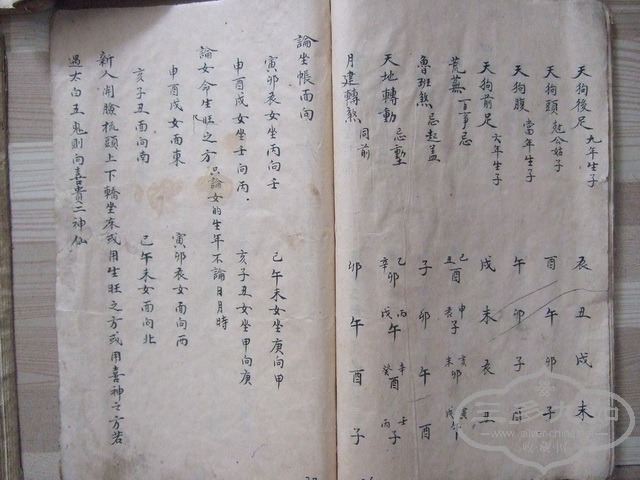 天狗後足 九年生子 辰 丑 戌 未
天狗頭 尅公姑子 酉 午 卯 子
天狗腹 當年生子 午 卯 子 酉
天狗前足 六年生子 戌 未 辰 丑
荒蕪 百事忌 巳酉丑 申子辰 亥卯未 寅午戌
魯班煞 忌起盖 子 卯 午 酉
天地轉動 忌動塹 乙卯辛 丙午戊 辛酉癸 壬子丙
月建轉煞 同前 卯 午 酉 子
論坐帳面向
寅卯辰女坐丙向壬 巳午未女坐庚向甲
申酉戌女坐壬向丙 亥子丑女坐甲向庚
論女命生旺之方 只論女的生年不論日月時
申酉戌女面東 寅卯辰女面向西
亥子丑女面向南 巳午未女面向北
新人開臉梳頭上下轎坐床或用生旺之方或用喜神之方若
遇太白五鬼則向喜貴二神仙
www.mixer-china.com